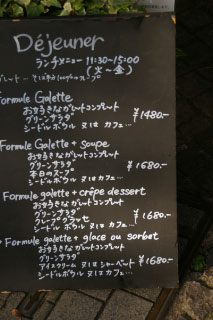 Déjeuner
ランチメニュー 11:30-15:00
(火〜金)
Formule Galette
お好きなガレットコンプレット
グリーンサラダ ¥1480.-
シードルボウル 又は カフェ...
Formule Galette + Soupe
お好きなガレットコンプレット
グリーンサラダ
本日のスープ ¥1680.-
シードルボウル 又は カフェ...
Formule galette + crêpe dessert
お好きなガレットコンプレット
グリーンサラダ
クレープデセール ¥1680.-
シードルボウル 又は カフェ...
Formule galette + glace ou sorbet
お好きなガレットコンプレット
グリーンサラダ
アイスクリーム 又は シャーベット ¥1680.-
シードルボウル 又は カフェ...